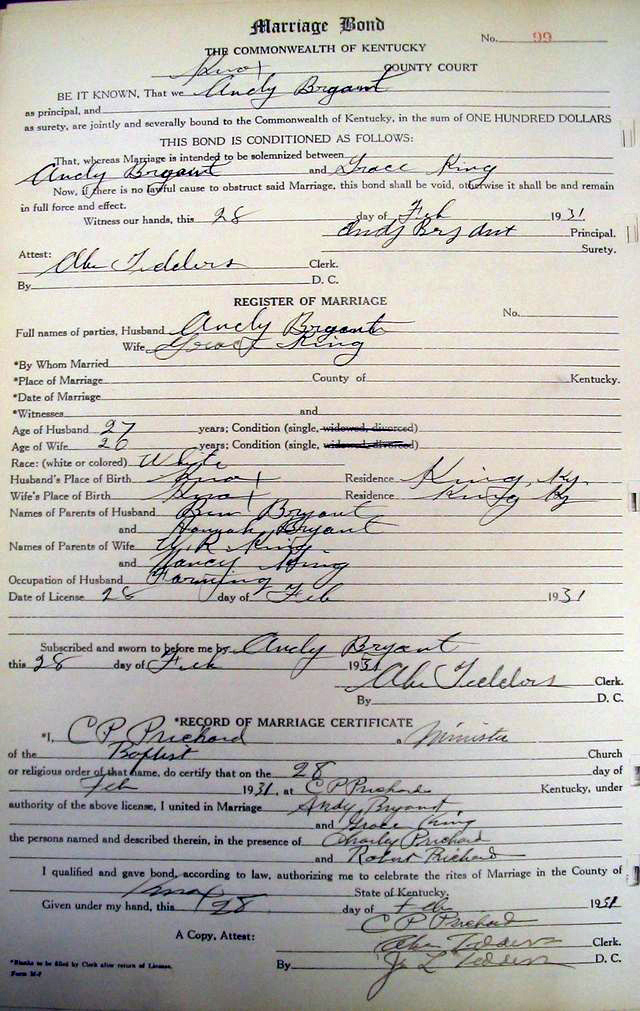 Marriage Bond
No. 99
THE COMMONWEALTH OF KENTUCKY
Knox COUNTY COURT
BE IT KNOWN, That we Andy Bryant
as principal, and
as surety, are jointly and severally bound to the Commonwealth of Kentucky, in the sum of ONE HUNDRED DOLLARS
THIS BOND IS CONDITIONED AS FOLLOWS:
That, whereas Marriage is intended to be solemnized between
Andy Bryant and Grace King
Now, if there is no lawful cause to obstruct said Marriage, this bond shall be void, otherwise it shall be and remain
in full force and effect.
Witness our hands, this 28 day of Feb 1931
Andy Bryant Principal.
Surety.
Attest: Abe Tedders Clerk.
By D. C.
REGISTER OF MARRIAGE
No.
Full names of parties, Husband Andy Bryant
Wife Grace King
*By Whom Married
*Place of Marriage County of Kentucky.
*Date of Marriage
*Witnesses and
Age of Husband 27 years; Condition (single, widowed, divorced)
Age of Wife 26 years; Condition (single, widowed, divorced)
Race: (white or colored) White
Husband's Place of Birth Knox Residence King, Ky.
Wife's Place of Birth Knox Residence King Ky
Names of Parents of Husband Ben Bryant
and Hannah Bryant
Names of Parents of Wife W. R. King
and Nancy King
Occupation of Husband Farming
Date of License 28 day of Feb 1931
Subscribed and sworn to before me by Andy Bryant
this 28 day of Feb 1931
Abe Tedders Clerk.
By D. C.
*RECORD OF MARRIAGE CERTIFICATE
*I, C P Prichard a Minister
of the Baptist Church
or religious order of that name, do certify that on the 28 day of
Feb 1931, at C P Prichard Kentucky, under
authority of the above license, I united in Marriage Andy Bryant
and Grace King
the persons named and described therein, in the presence of Charley Prichard
and Robert Prichard
I qualified and gave bond, according to law, authorizing me to celebrate the rites of Marriage in the County of
Knox State of Kentucky.
Given under my hand, this 28 day of Feb 1931
C P Prichard
A Copy, Attest: Abe Tedders Clerk.
By L Tedders D. C.
*Blanks to be filled by Clerk after return of License.
Form M-F